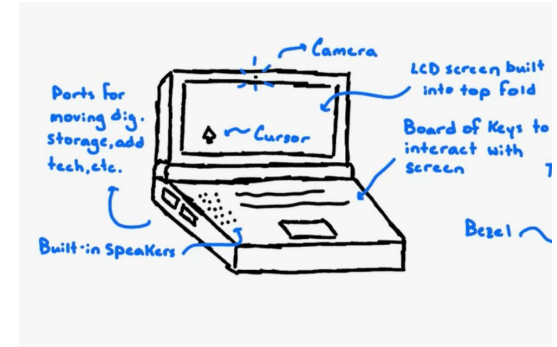 Camera
LCD screen built
into top fold
Ports for
moving dig.
storage, add
tech, etc.
Cursor
Board of Keys to
interact with
screen
Built-in Speakers
Bezel